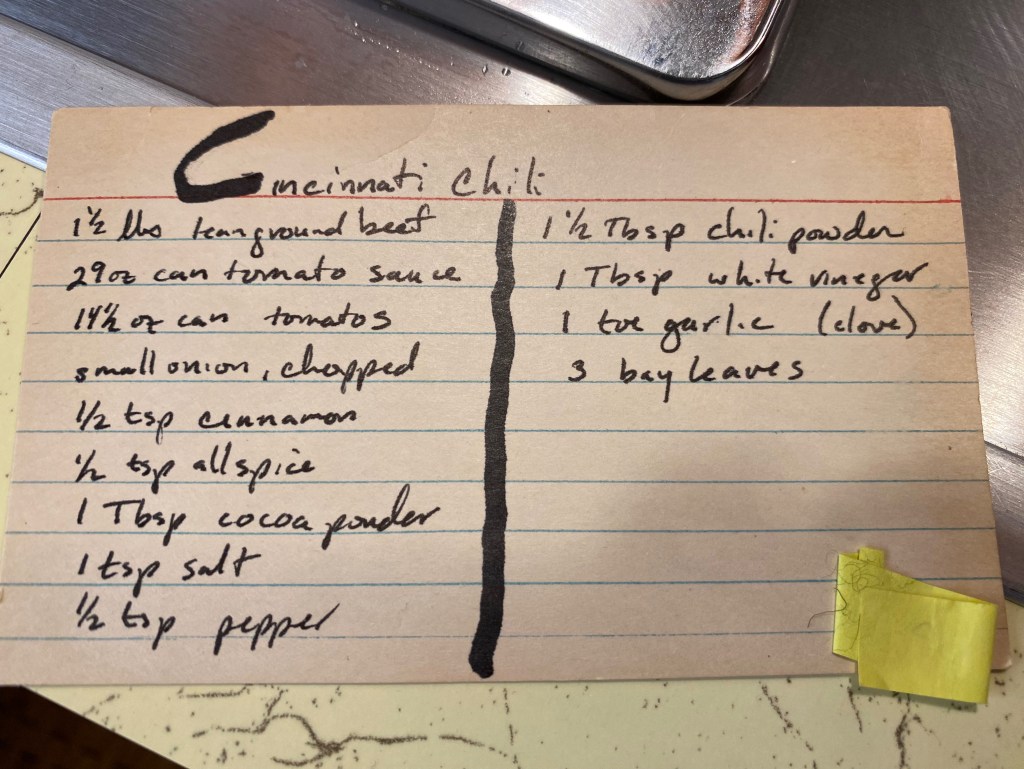 Cincinnati Chili
1 1/2 lbs lean ground beef
29 oz can tomato sauce
14 1/2 oz can tomatos
small onion, chopped
1/2 tsp cinnamon
1/2 tsp allspice
1 Tbsp cocoa powder
1 tsp salt
1/2 tsp pepper
1 1/2 Tbsp chili powder
1 Tbsp white vinegar
1 toe garlic (clove)
3 bay leaves